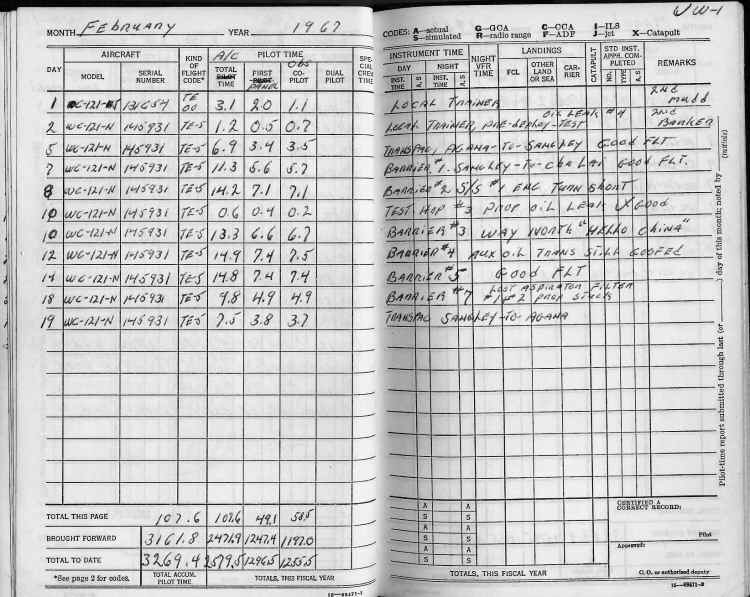 MONTH FEBRUARY YEAR 1967
AIRCRAFT A/C PILOT TIME
DAY MODEL SERIAL NUMBER KIND OF FLIGHT CODE* TOTAL PILOT TIME FIRST PILOT PANEL OBS CO-PILOT DUAL PILOT SPE-CIAL CREW TIME
1 131654 TE 00 3.1 2.0 1.1
2 WC-121-N 145931 TE-5 1.2 0.5 0.7
5 WC-121-N 145931 TE-5 6.9 3.4 3.5
7 WC-121-N 145931 TE-5 11.3 5.6 5.7
8 WC-121-N 145931 TE-5 14.2 7.1 7.1
10 WC-121-N 145931 TE-5 0.6 0.4 0.2
10 WC-121-N 145931 TE-5 13.3 6.6 6.7
12 WC-121-N 145931 TE-5 14.9 7.4 7.5
14 WC-121-N 145931 TE-5 14.8 7.4 7.4
18 WC-121-N 145931 TE-5 9.8 4.9 4.9
19 WC-121-N 145931 TE-5 7.5 3.8 3.7
TOTAL THIS PAGE 107.6 107.6 49.1 58.5
BROUGHT FORWARD 3161.8 2471.9 1247.4 1197.0
TOTAL TO DATE 3269.4 2579.5 1296.5 1255.5
*See page 2 for codes. TOTAL ACCUM. PILOT TIME TOTALS, THIS FISCAL YEAR
VW-1
CODES: A—actual G—GCA C—CCA I—ILS
S—simulated R—radio range F—ADF J—jet X—Catapult
INSTRUMENT TIME NIGHT VFR TIME LANDINGS CATAPULT STD INST. APPR. COM-PLETED REMARKS
DAY NIGHT FCL OTHER LAND OR SEA CAR-RIER
INST. TIME A, S INST. TIME A, S NO. TYPE A, S
LOCAL TRAINER 2ND MUDD
LOCAL TRAINER, PRE-DEPLOY-TEST OIL LEAK #4 2ND BARKER
TRANSPAC, AGANA-TO-SANGLEY GOOD FLT
BARRIER #1. SANGLEY-TO-CHU LAI GOOD FLT.
BARRIER #2 S/S #1 ENG TURN SHORT
TEST HOP #3 PROP OIL LEAK GOOD
BARRIER #3 WAY NORTH "HELLO CHINA"
BARRIER #4 AUX OIL TRANS STILL GOOFED
BARRIER #5 GOOD FLT
BARRIER #7 LOST ASPIRATOR FILTER #1 #2 PROP STUCK
TRANSPAC SANGLEY-TO-AGANA
A A
S S
A A
S S
A A
S S
TOTALS, THIS FISCAL YEAR
CERTIFIED A CORRECT RECORD:
Pilot
Approved:
C. O. or authorized deputy
Pilot-time report submitted through last (or ) day of this month; noted by (initials)